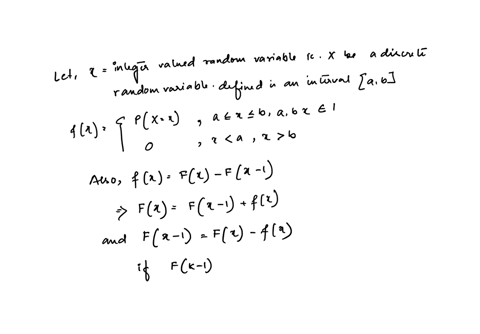 Let, x = integer valued random variable ie. X be a discrete
random variable. defined in an interval [a,b]
f(x) = { P(X=x) , a ≤ x ≤ b, a, b x ∈ I
0 , x < a , x > b
Also, f(x) = F(x) - F(x-1)
⇒ F(x) = F(x-1) + f(x)
and F(x-1) = F(x) - f(x)
if F(k-1)